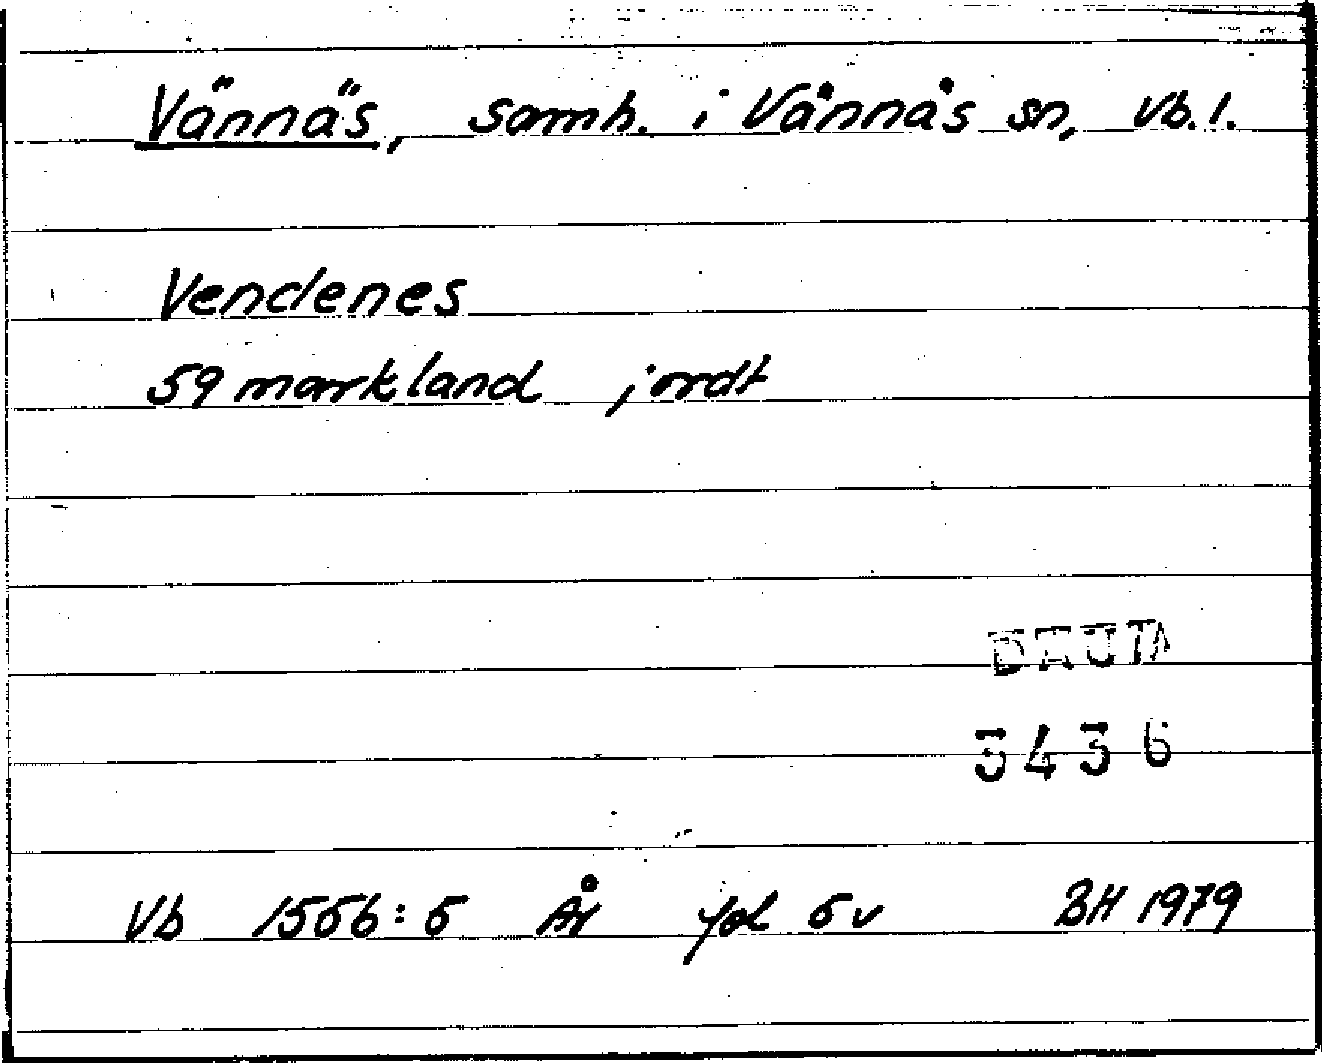 Vännäs, samh. i Vännäs sn, Vb. l.
Vendenes
59 markland jordt
DAUM
3436
Vb 1556:5 År fol 5v BH 1979